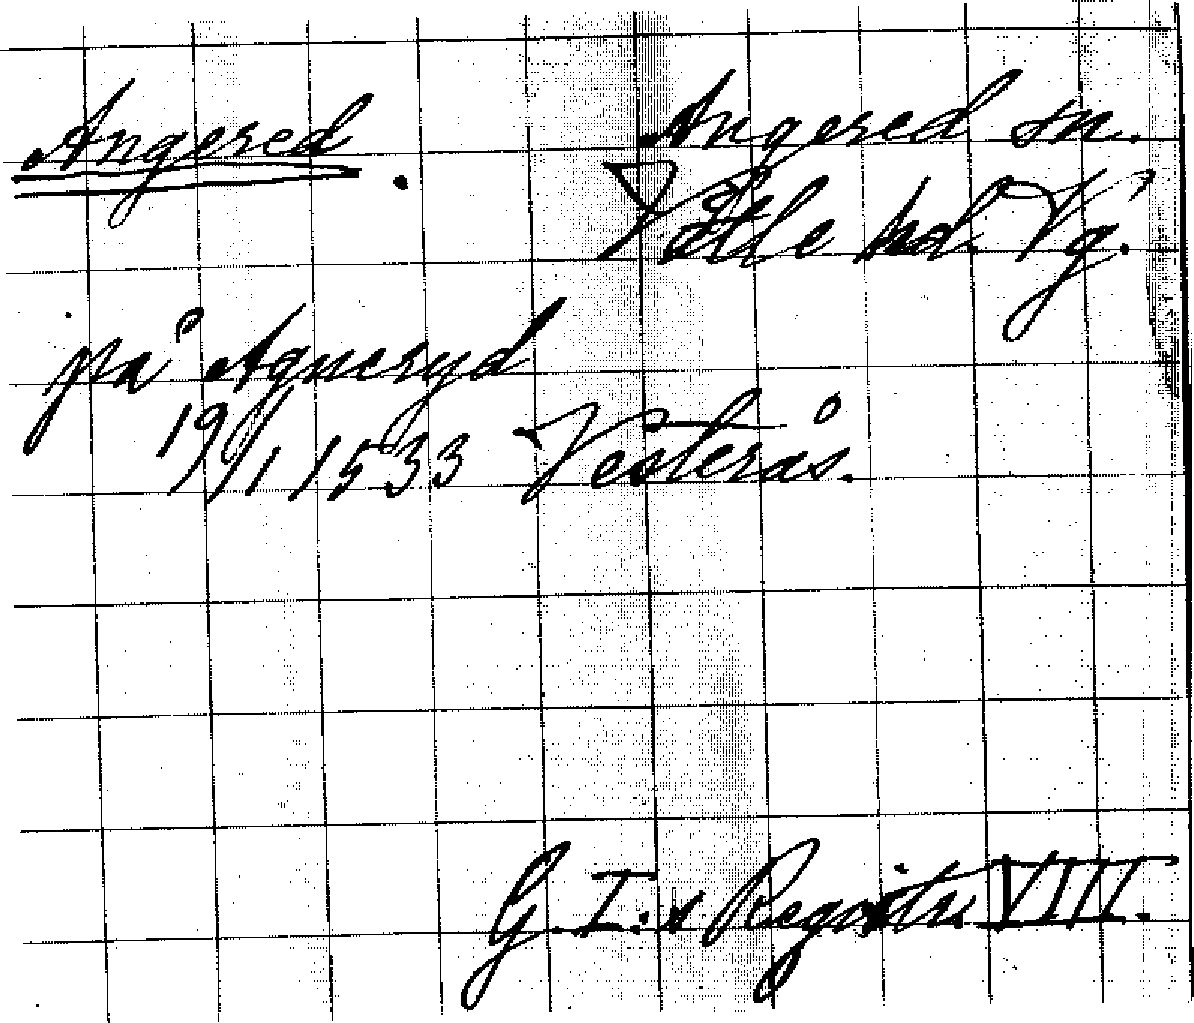 Angered.
Angered sn.
Vätle hd. Vg.
på Agneryd
19/1 1533 Vesterås.
G. I:s Registr. VIII.